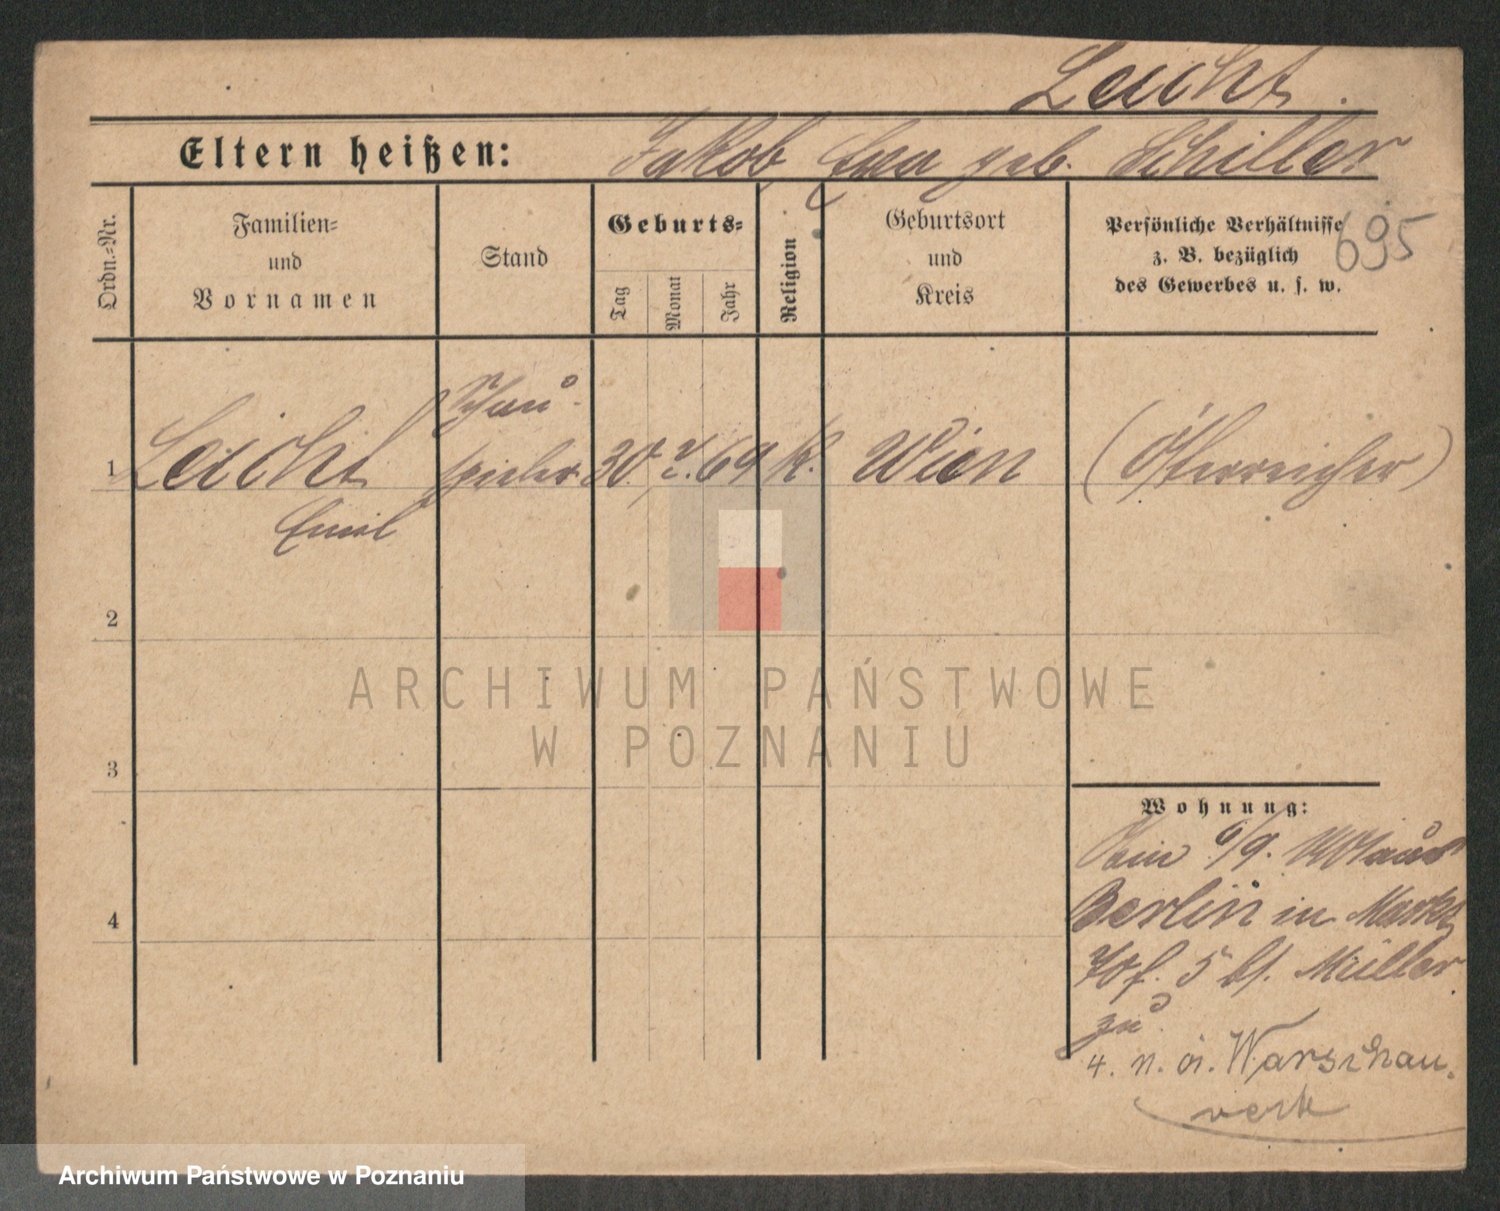 Leicht.
Eltern heißen: Jakob, Ewa geb. Schiller
Ordn.=Nr.
Familien=
und
Vornamen
Stand
Geburts=
Tag
Monat
Jahr
Religion
Geburtsort
und
Kreis
Persönliche Verhältnisse
z. B. bezüglich
des Gewerbes u. s. w.
695
1 Leicht Schau-
spieler 30. 69 K. Wien (Österreicher)
Emil
2
3
4
Wohnung:
6/9. aus
Berlin in Markt
5 bf. Müller
zu
4. n. Warschau.
verk
ARCHIWUM PAŃSTWOWE
W POZNANIU
Archiwum Państwowe w Poznaniu